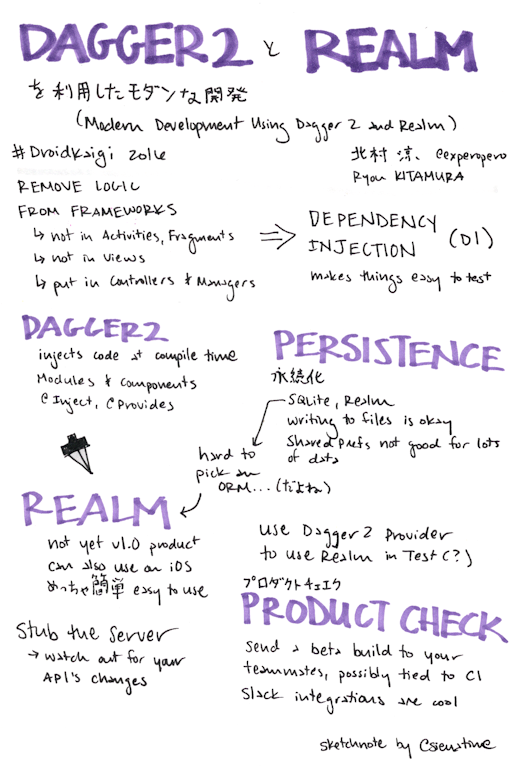 DAGGER2 と REALM
を利用したモダンな開発
(Modern Development Using Dagger 2 and Realm)
#DroidKaigi 2016
北村 涼、@experopero
Ryou KITAMURA
REMOVE LOGIC
FROM FRAMEWORKS
↳ not in Activities, Fragments
↳ not in Views
↳ put in Controllers & Managers
⇒ DEPENDENCY
INJECTION (DI)
makes things easy to test
DAGGER2
injects code at compile time
Modules & Components
@Inject, @Provides
PERSISTENCE
永続化
SQLite, Realm
writing to files is okay
Shared Prefs not good for lots
of data
hard to
pick an
ORM... (だよね)
REALM
not yet v1.0 product
can also use on iOS
めっちゃ簡単 easy to use
use Dagger 2 Provider
to use Realm in Test (?)
Stub the Server
→ watch out for your
API's changes
プロダクトチェック
PRODUCT CHECK
Send a beta build to your
teammates, possibly tied to CI
Slack integrations are cool
sketchnote by